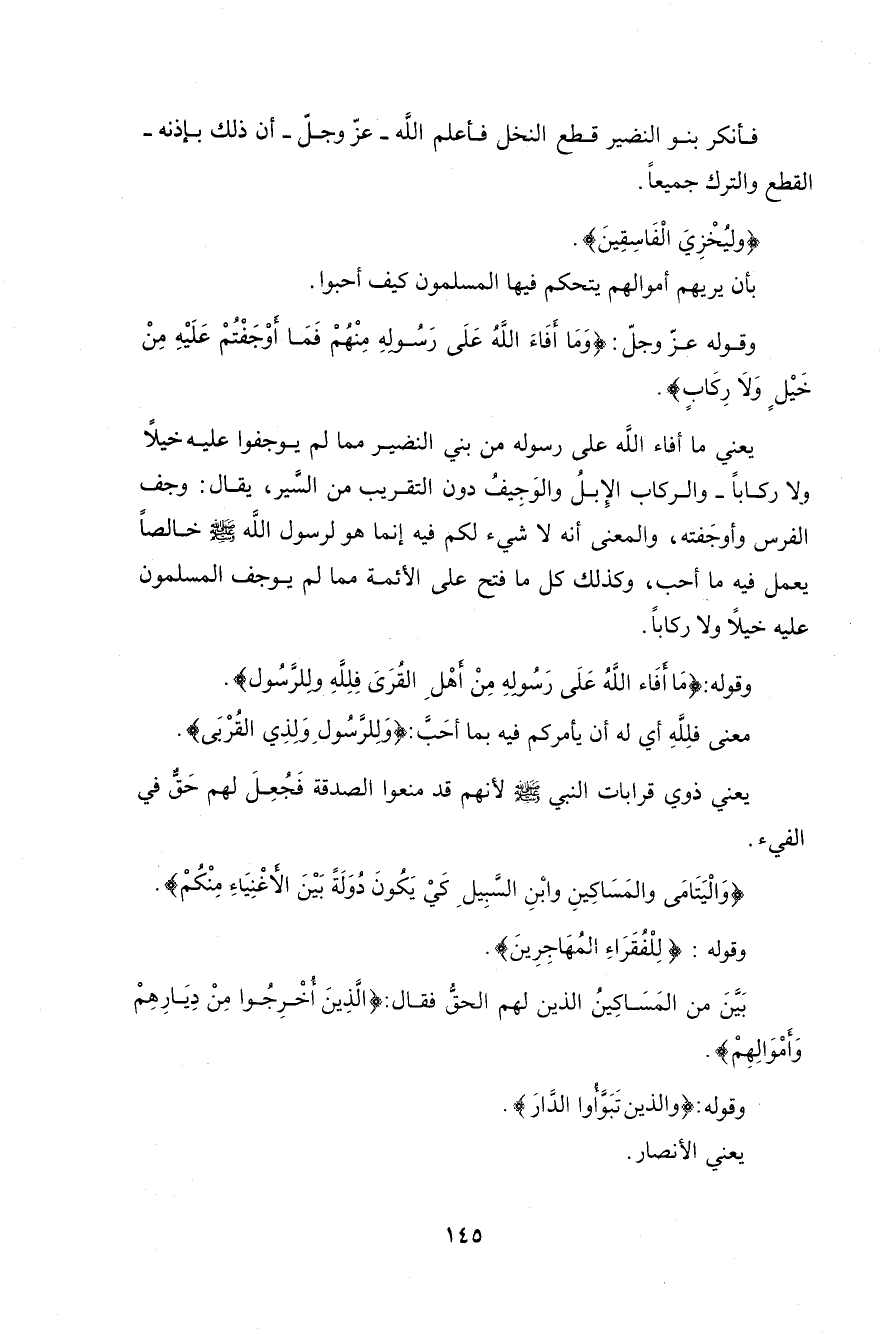 فأنكر بنو النضير قطع النخل فأعلم اللَّه - عزّ وجلّ - أن ذلك بإذنه -
القطع والترك جميعاً.
﴿وليُخْزِيَ الْفَاسِقِينَ﴾.
بأن يريهم أموالهم يتحكم فيها المسلمون كيف أحبوا.
وقوله عزّ وجلّ: ﴿وَمَا أَفَاءَ اللَّهُ عَلَى رَسُولِهِ مِنْهُمْ فَمَا أَوْجَفْتُمْ عَلَيْهِ مِنْ
خَيْلٍ وَلَا رِكَابٍ﴾.
يعني ما أفاء اللَّه على رسوله من بني النضير مما لم يوجفوا عليه خيلًا
ولا ركاباً - والركاب الإِبلُ والوَجِيفُ دون التقريب من السَّير، يقال: وجف
الفرس وأوجَفته، والمعنى أنه لا شيء لكم فيه إنما هو لرسول اللَّه ﷺ خالصاً
يعمل فيه ما أحب، وكذلك كل ما فتح على الأئمة مما لم يوجف المسلمون
عليه خيلًا ولا ركاباً.
وقوله:﴿مَا أَفَاء اللَّهُ عَلَى رَسُولِهِ مِنْ أَهْلِ القُرَى فِللَّهِ وللرَّسُول﴾.
معنى فللَّهِ أي له أن يأمركم فيه بما أحَبَّ:﴿وَلِلرَّسُولِ وَلِذِي القُرْبَى﴾.
يعني ذوي قرابات النبي ﷺ لأنهم قد منعوا الصدقة فَجُعِلَ لهم حَقٌّ في
الفيء.
﴿وَالْيَتَامَى والمَسَاكِينِ وابْنِ السَّبِيلِ كَيْ يَكُونَ دُولَةً بَيْنَ الأَغْنِيَاءِ مِنْكُمْ﴾.
وقوله : ﴿لِلْفُقَرَاءِ المُهَاجِرِينَ﴾.
بَيَّنَ من المَسَاكِينُ الذين لهم الحقُّ فقال:﴿الَّذِينَ أُخْرِجُوا مِنْ دِيَارِهِمْ
وَأَمْوَالِهِمْ﴾.
وقوله:﴿والذين تَبَوَّأُوا الدَّارَ﴾.
يعني الأنصار.
١٤٥